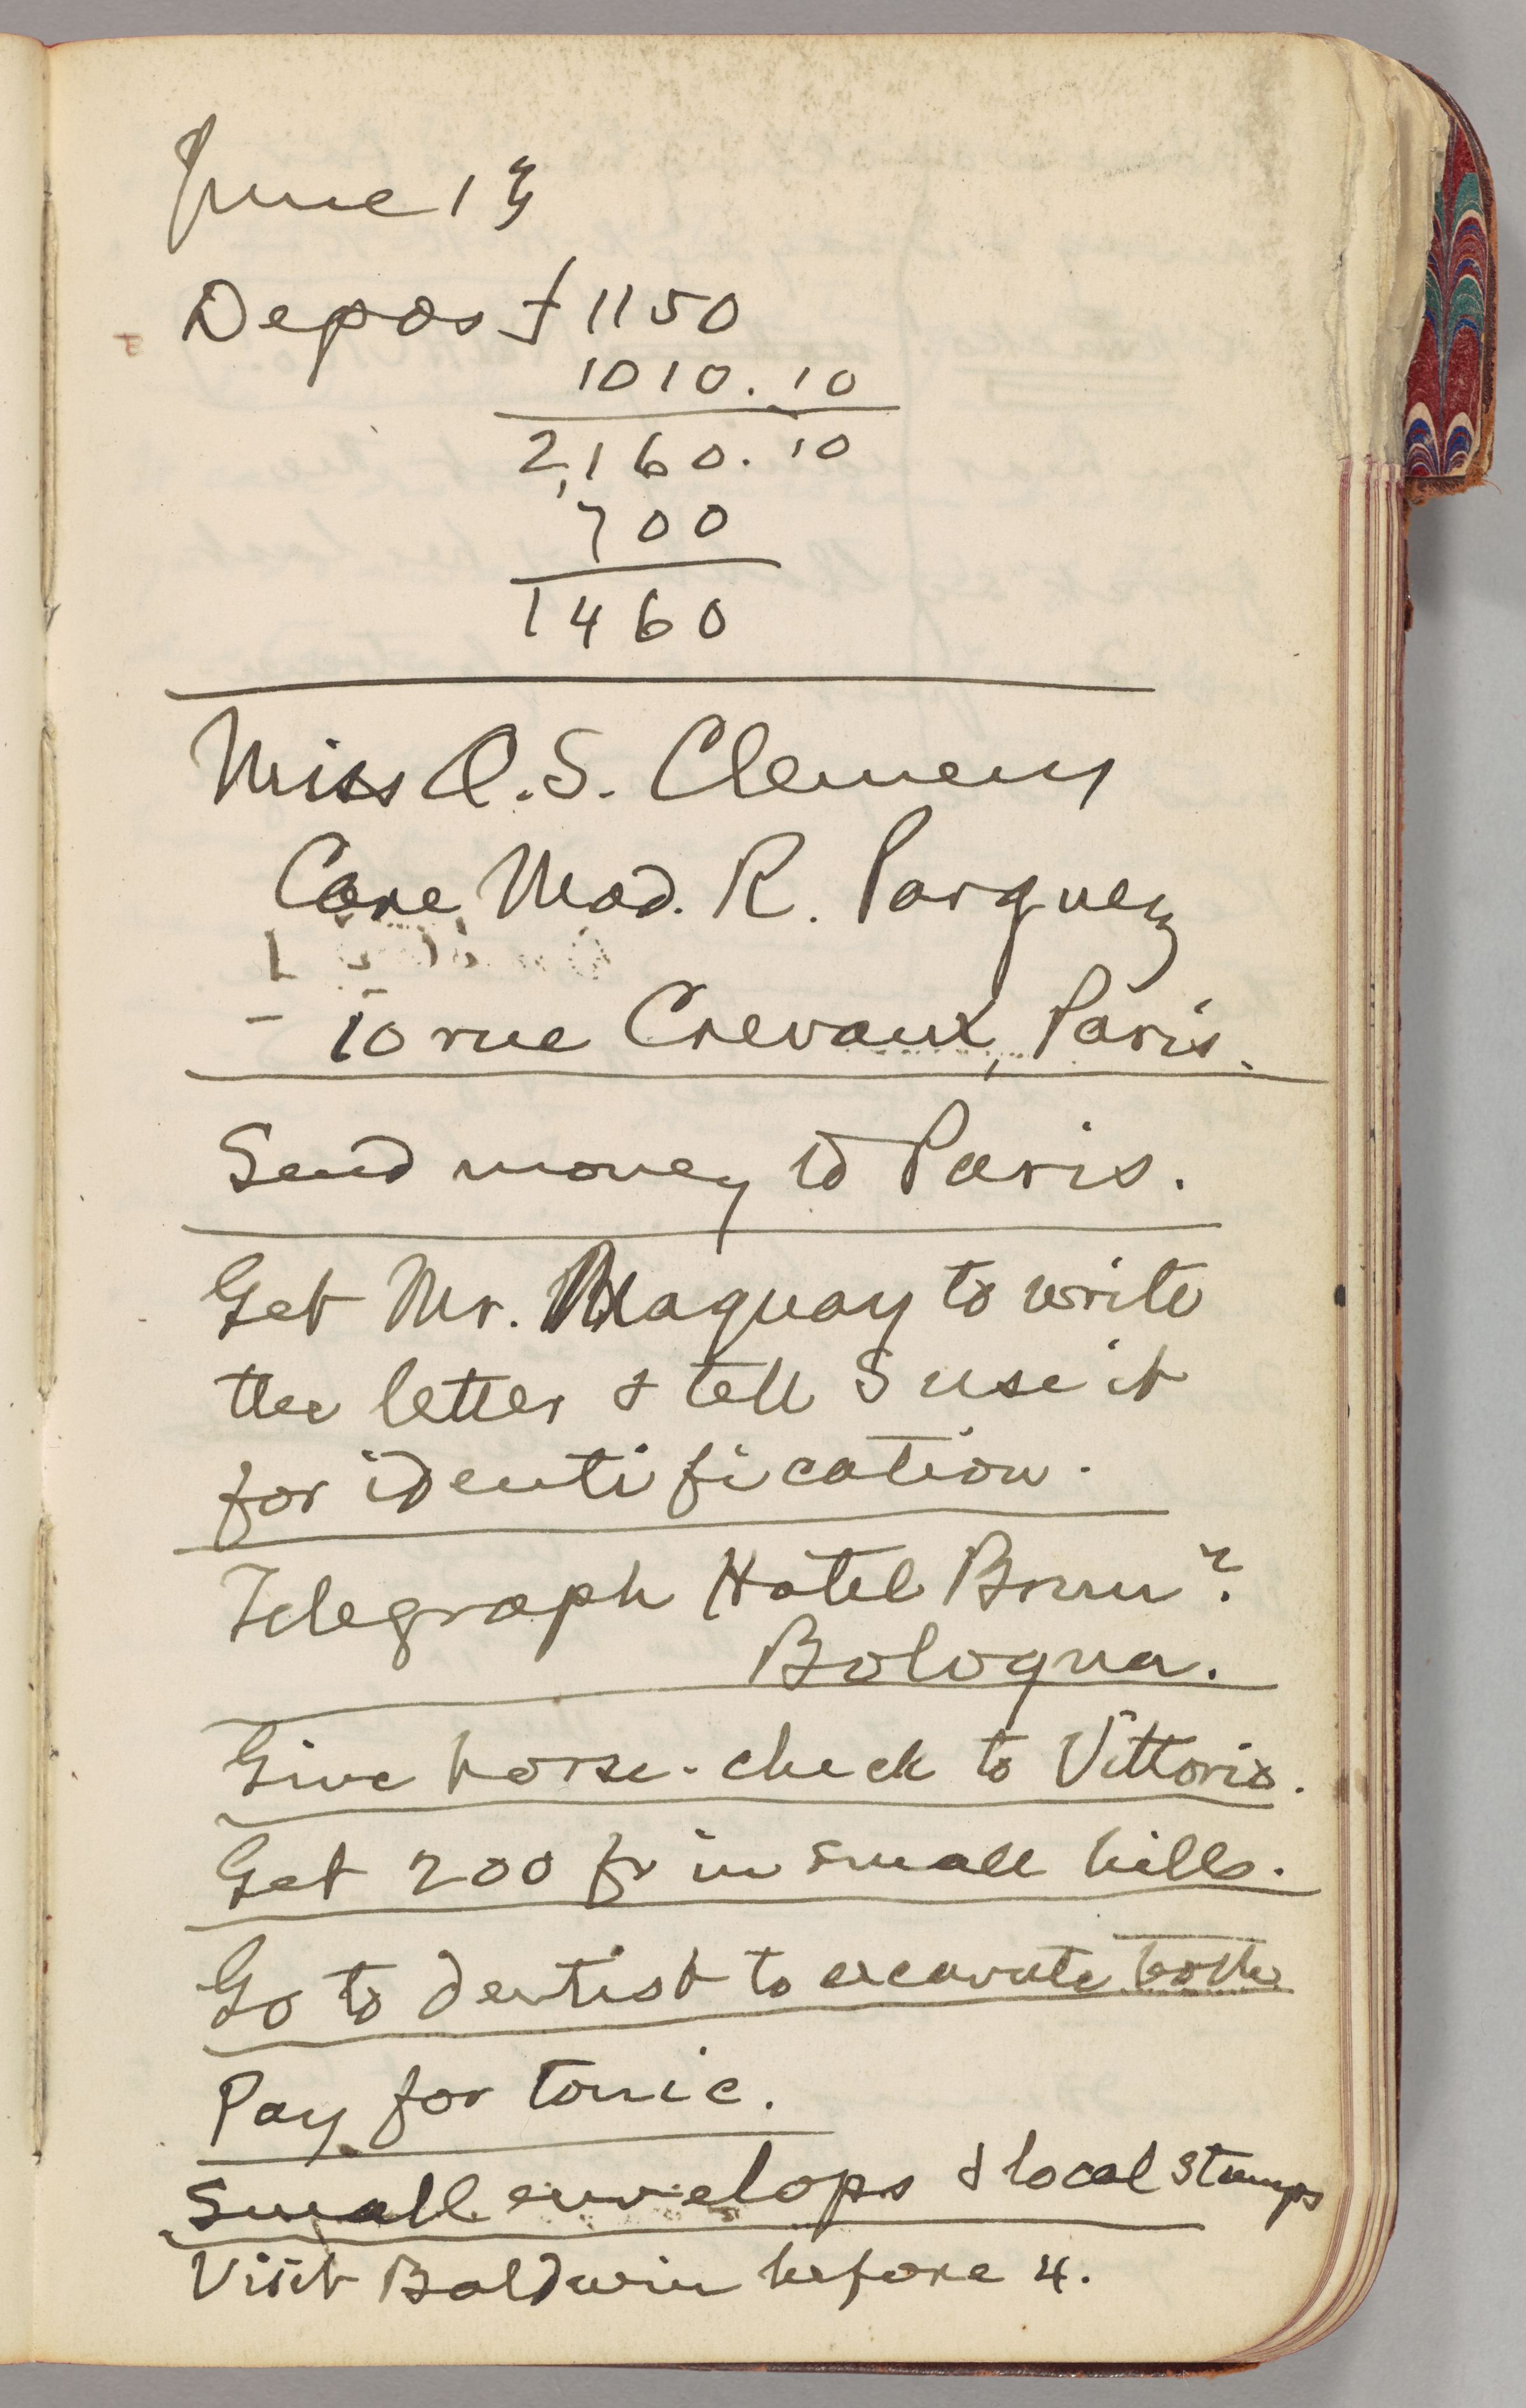 June 13
Depos £1150
1010.10
2,160.10
700
1460
Miss O. S. Clemens
Care Mad. R. Parquez
10 rue Crevaux, Paris.
Send money to Paris.
Get Mr. Maquay to write
the letter & tell S use it
for identification.
Telegraph Hotel Brun?
Bologna.
Give horse-check to Vittorio.
Get 200 fr in small bills.
Go to dentist to excavate
Pay for tonic.
Small envelops & local stamps
Visit Baldwin before 4.